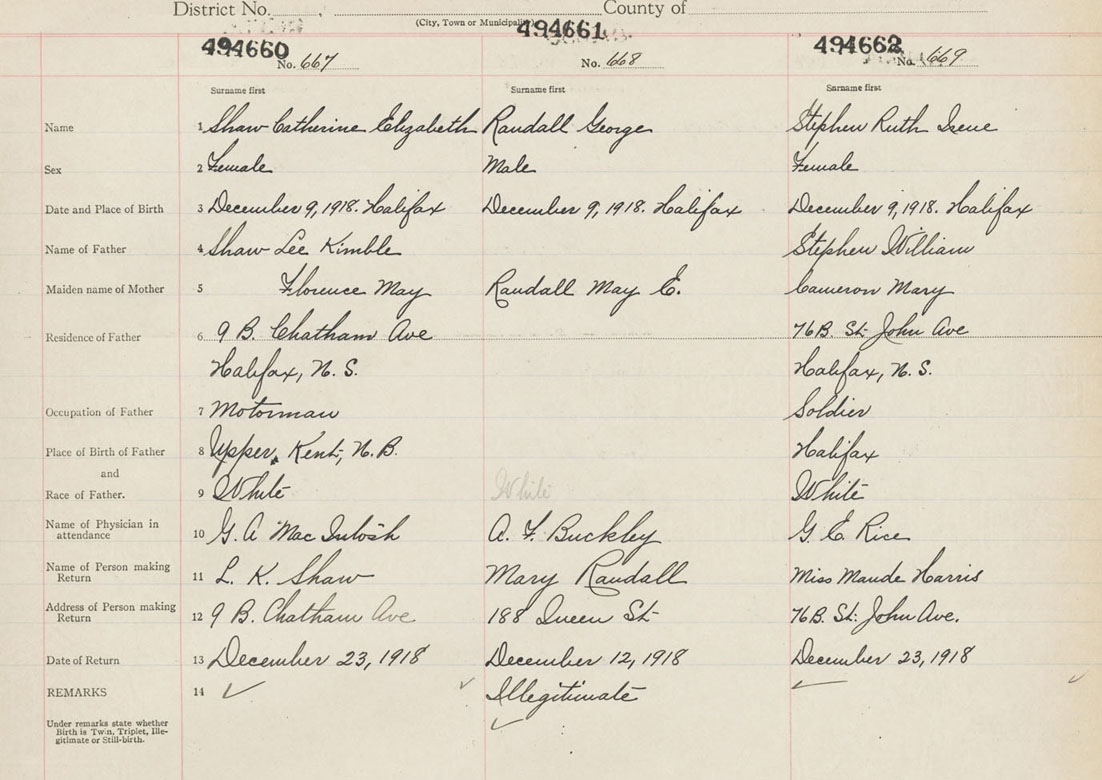 District No. , County of
(City, Town or Municipality)
494660 494661 494662
No. 667 No. 668 No. 669
Surname first Surname first Surname first
Name 1 Shaw Catherine Elizabeth Randall George Stephen Ruth Irene
Sex 2 Female Male Female
Date and Place of Birth 3 December 9, 1918. Halifax December 9, 1918. Halifax December 9, 1918. Halifax
Name of Father 4 Shaw Lee Kimble Stephen William
Maiden name of Mother 5 Florence May Randall May E. Cameron Mary
Residence of Father 6 9 B. Chatham Ave 76 B. St. John Ave
Halifax, N. S. Halifax, N. S.
Occupation of Father 7 Motorman Soldier
Place of Birth of Father 8 Upper, Kent, N. B. Halifax
and
Race of Father. 9 White White White
Name of Physician in
attendance 10 G. A Mac Intosh A. F. Buckley G. E. Rice
Name of Person making
Return 11 L. K. Shaw Mary Randall Miss Maude Harris
Address of Person making
Return 12 9 B. Chatham Ave 188 Queen St 76 B. St. John Ave.
Date of Return 13 December 23, 1918 December 12, 1918 December 23, 1918
REMARKS 14 ✓ ✓ Illegitimate ✓ ✓
Under remarks state whether
Birth is Twin, Triplet, Ille-
gitimate or Still-birth. ✓